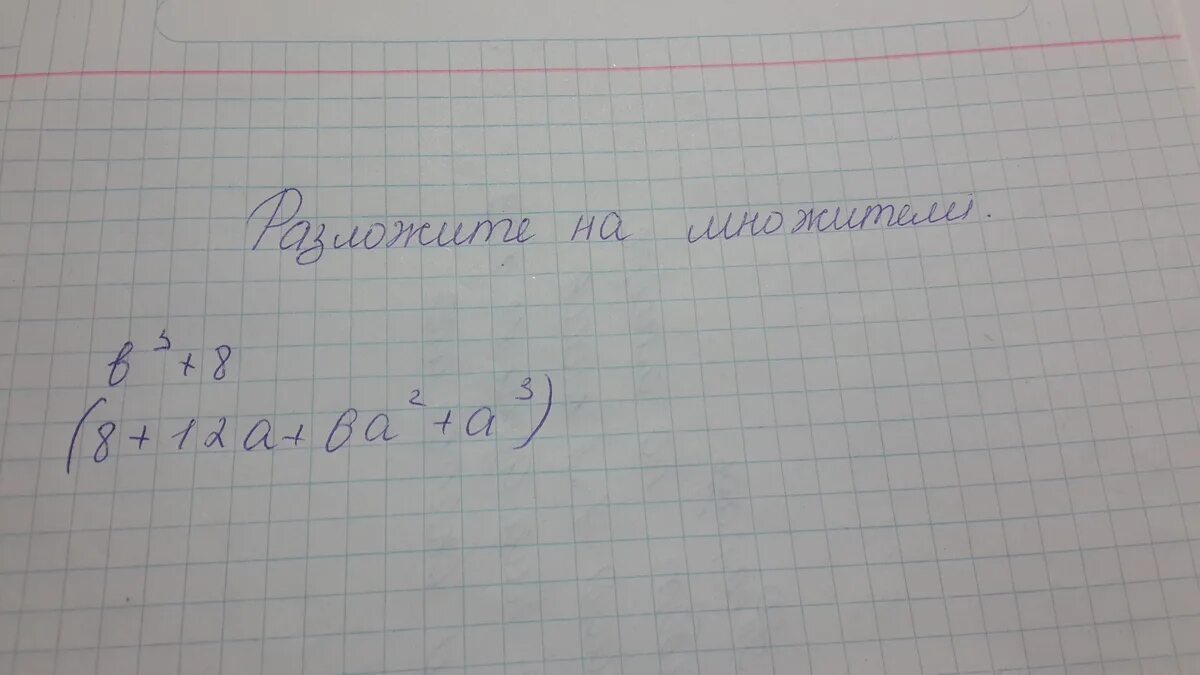 Разложите на множители.
в³+8
(8+12а+6а²+а³)